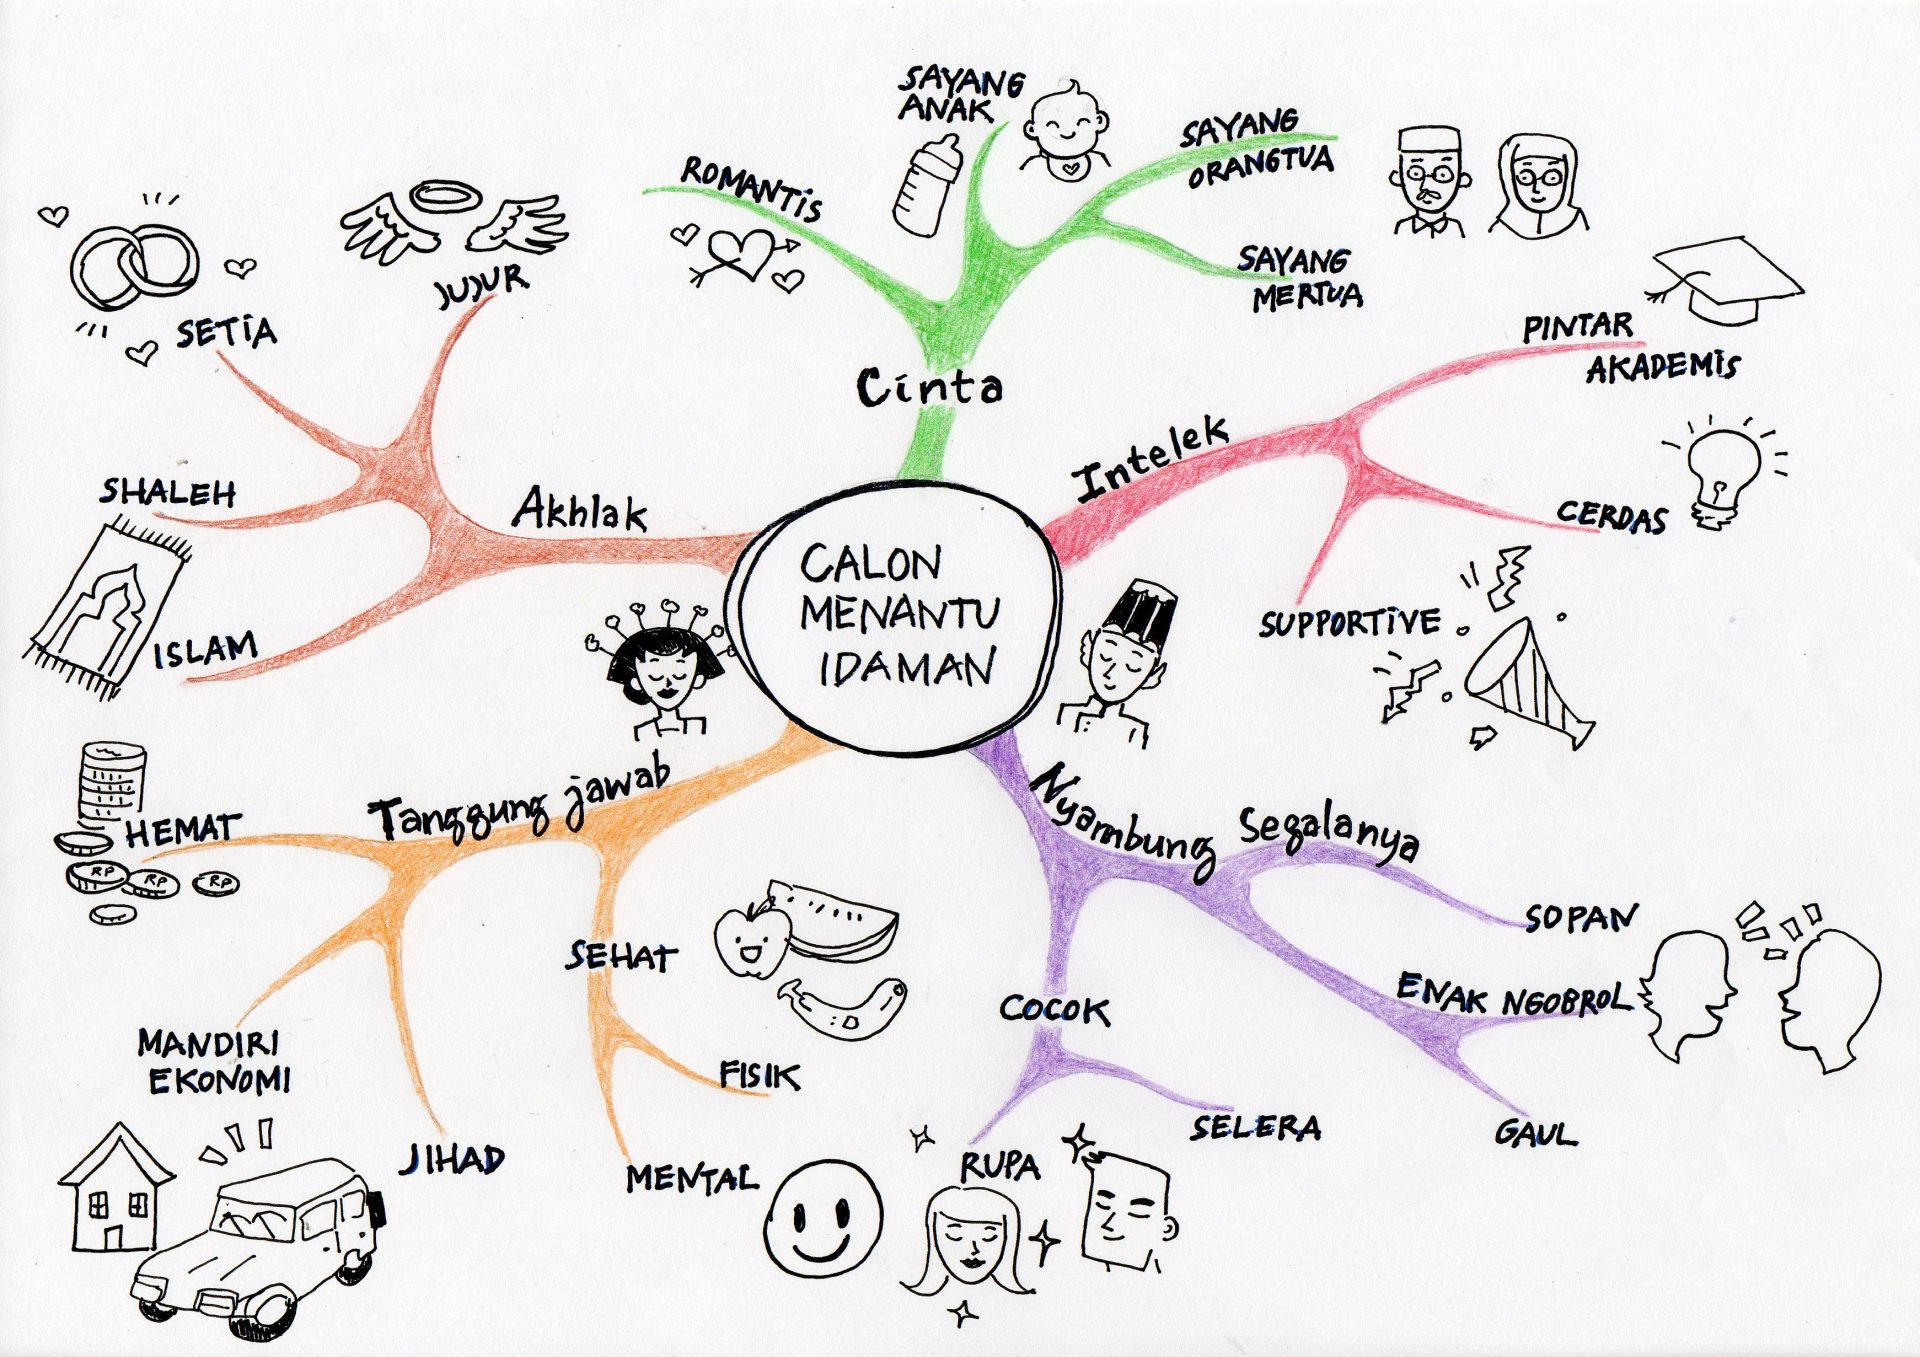 CALON
MENANTU
IDAMAN
Cinta
ROMANTIS
SAYANG
ANAK
SAYANG
ORANGTUA
SAYANG
MERTUA
Intelek
PINTAR
AKADEMIS
CERDAS
SUPPORTIVE
Nyambung Segalanya
SOPAN
ENAK NGOBROL
GAUL
COCOK
SELERA
RUPA
Tanggung jawab
SEHAT
FISIK
MENTAL
JIHAD
MANDIRI
EKONOMI
HEMAT
RP
RP
RP
Akhlak
ISLAM
SHALEH
SETIA
JUJUR